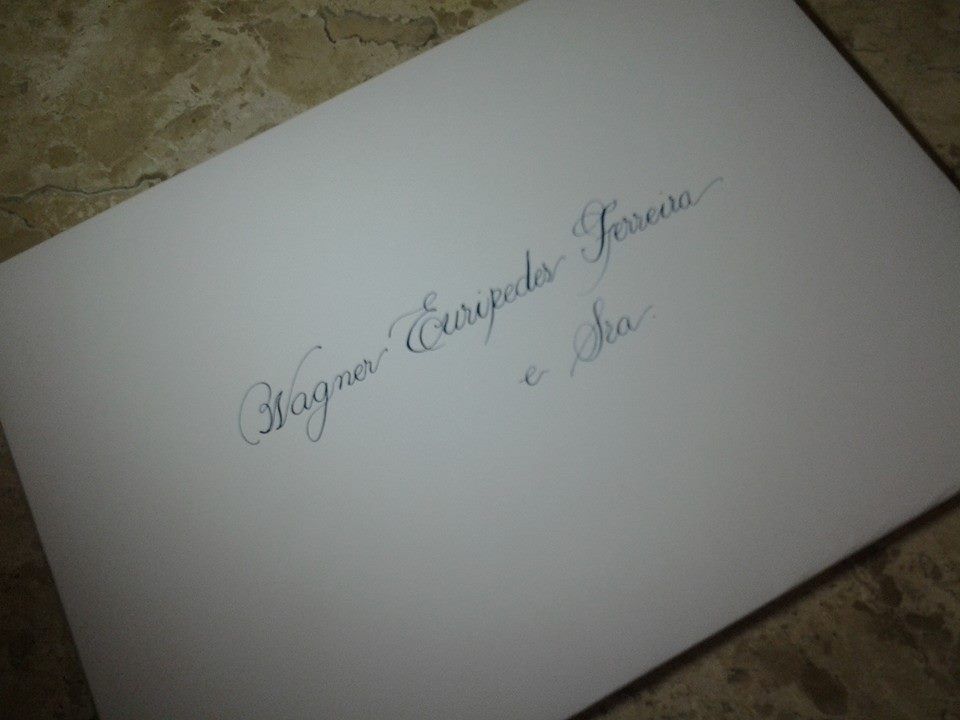 Wagner Euripedes Ferreira
e Sra.